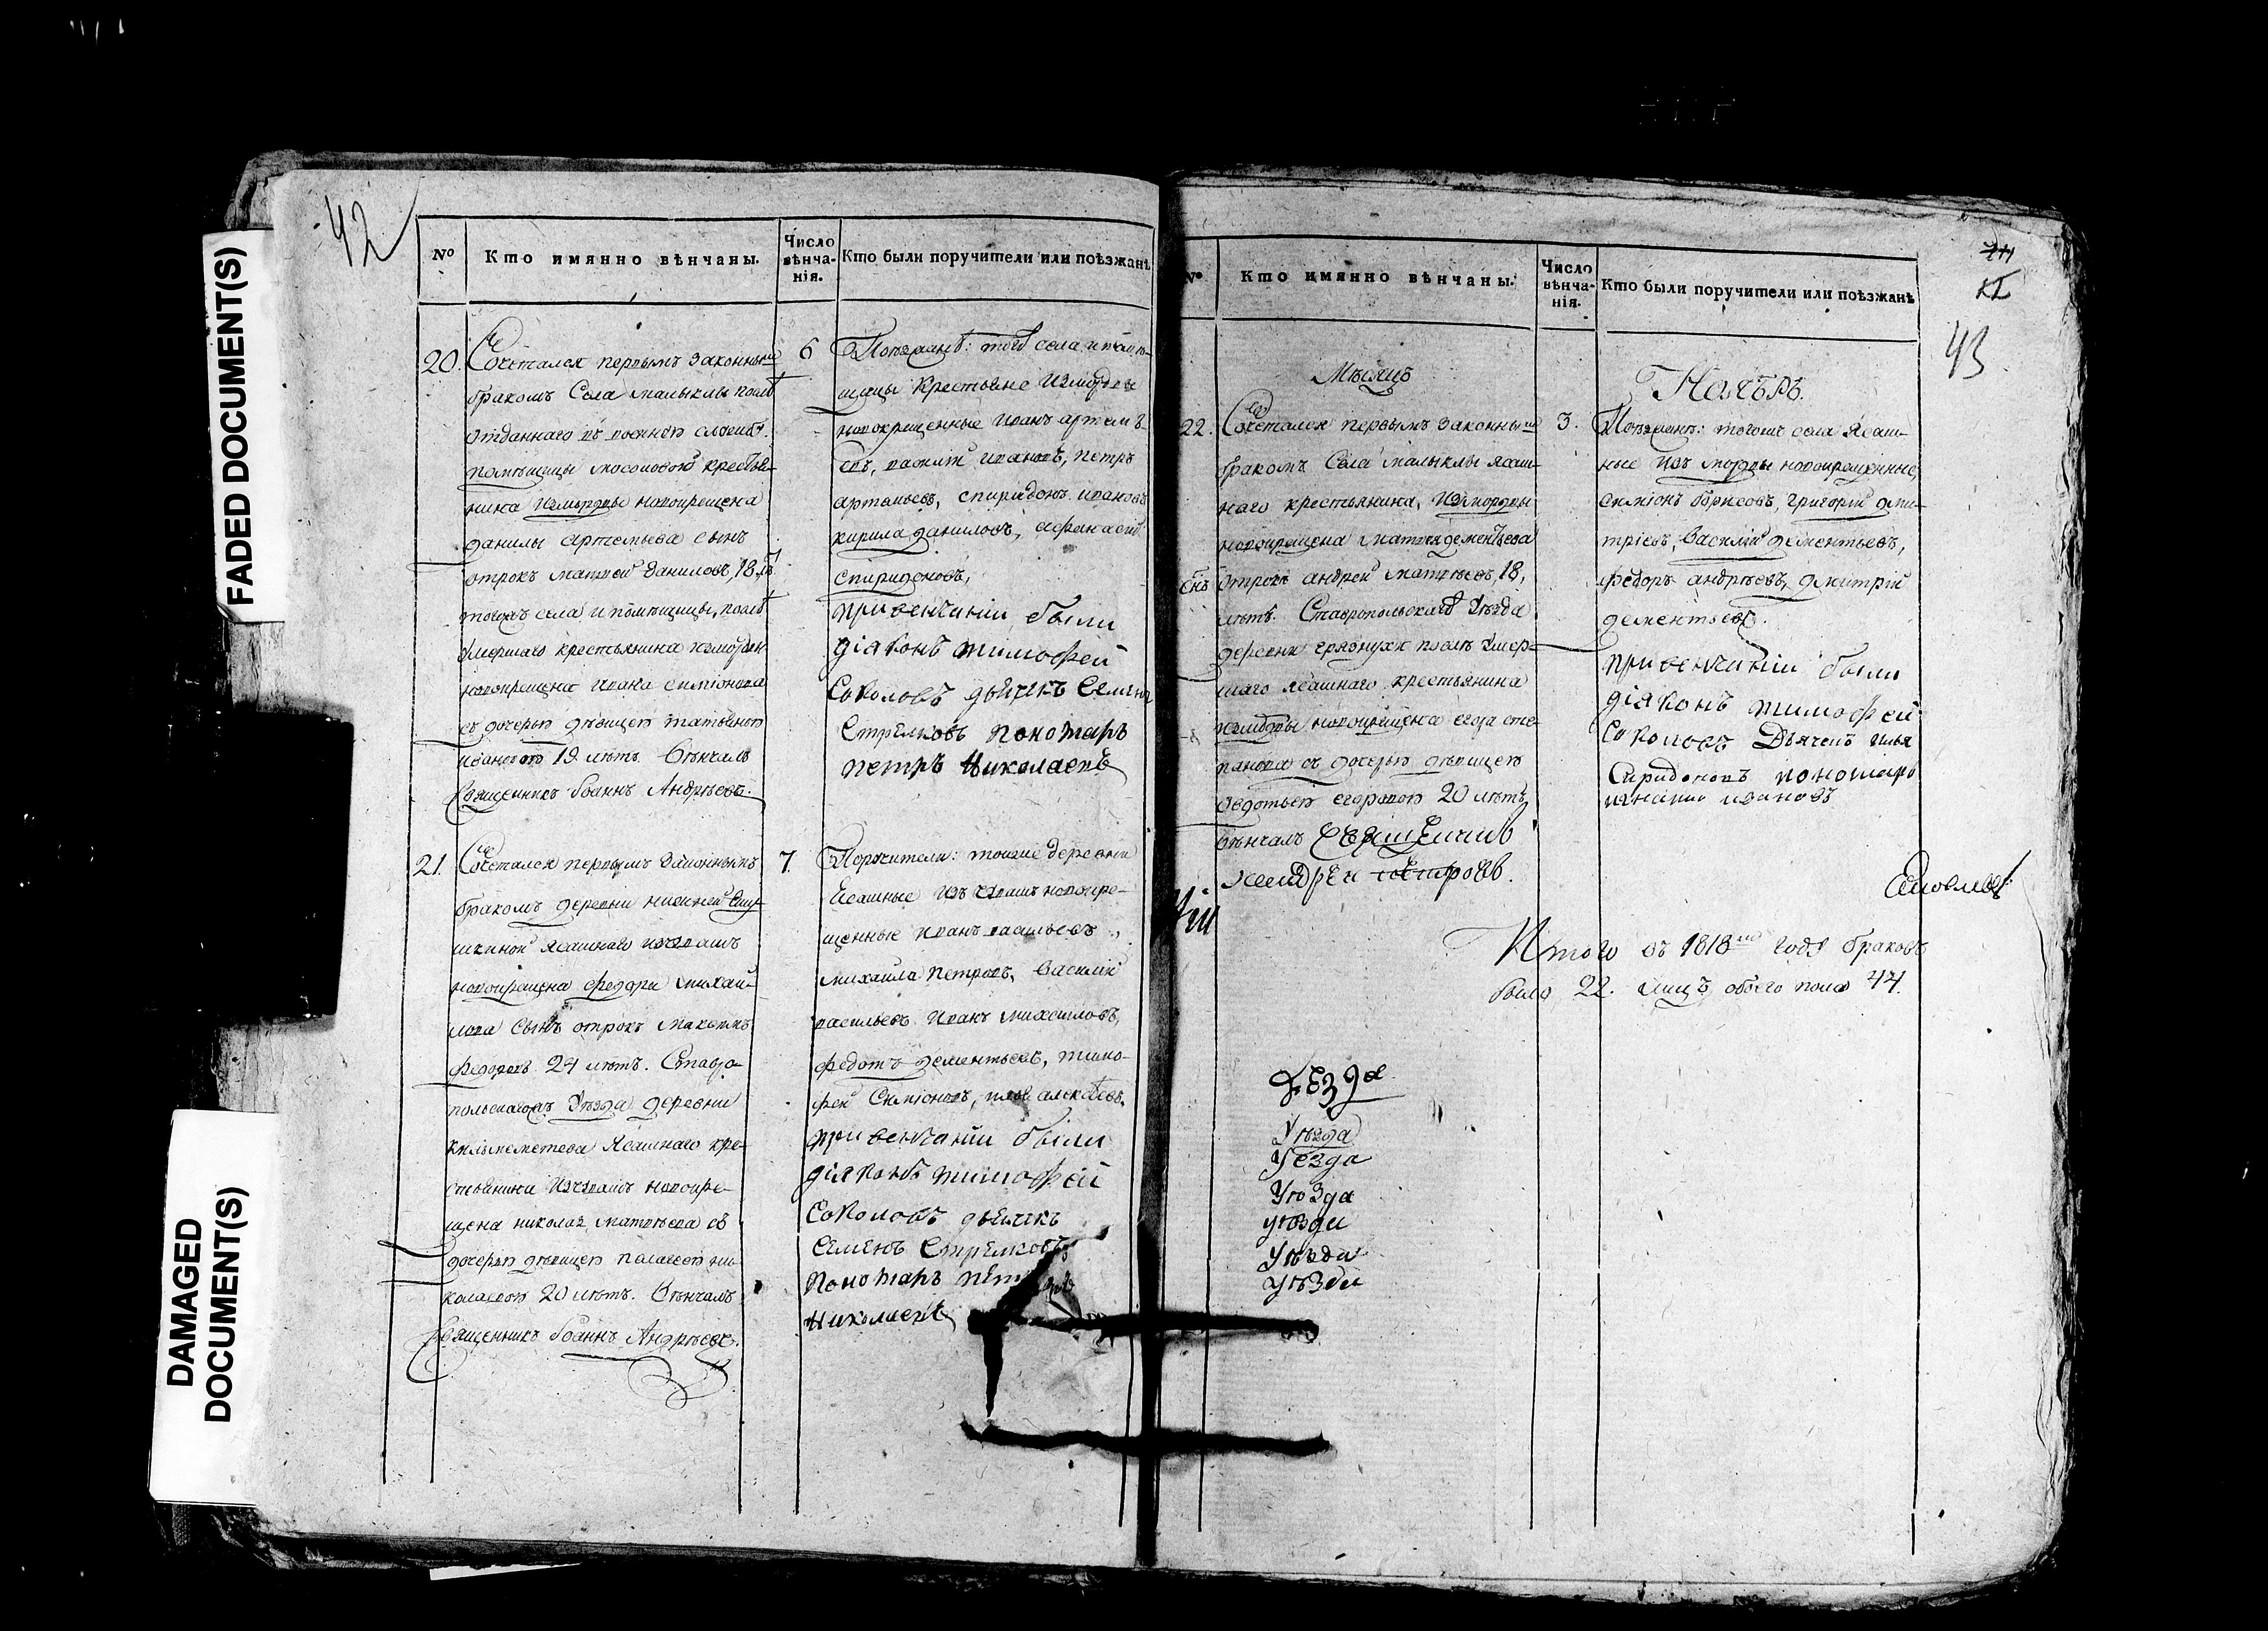 FADED DOCUMENT(S)
DAMAGED
DOCUMENT(S)
42
№ Кто имянно вѣнчаны. Число вѣнча-нія. Кто были поручители или поѣзжанѣ
20. Сочетался первымъ законнымъ
бракомъ Села малыклы послѣ
отданнаго въ военную службу
помѣщицы мосоловой крестья-
нина измордвы новокрещена
данилы артемьева сынъ
отрокъ матвей даниловъ, 18 лѣтъ
тогожъ села и помѣщицы, послѣ
умершаго крестьянина измордвы
новокрещена ивана симіонова
съ дочерью дѣвицею татьяною
ивановою 19 лѣтъ. Вѣнчалъ
Священникъ Іоаннъ Андрѣевъ.
6
Поѣзжанѣ: того села и помѣ-
щицы Крестьяне Измордвы
новокрещенные иванъ артемь
евъ, иванъ, петръ
артемьевъ, спиридонъ ивановъ
кирила даниловъ, афанасій
спиридоновъ,
при венчаніи были
діяконъ тимофей
Соколовъ дьячекъ Семенъ
Стрелковъ пономарь
петръ Николаевъ
21. Сочетался первымъ законнымъ
бракомъ деревни нижней
ясашнаго изчувашъ
новокрещена федора михай-
лова сынъ отрокъ максимъ
федоровъ 24 лѣтъ. Ставро-
польскагожъ уѣзда деревни
кильметева Ясашнаго кре-
стьянина изчувашъ новокре-
щена николая матвѣева съ
дочерью дѣвицею пелагеею ни-
колаевою 20 лѣтъ. Вѣнчалъ
Священникъ Іоаннъ Андрѣевъ.
7.
Поручители: тоиже деревни
Ясашные изъ чувашъ новокре-
щенные иванъ васильевъ,
михаила петровъ, василій
васильевъ иванъ михайловъ,
федотъ дементьевъ, тимо-
фей Симіоновъ, алексѣевъ.
при венчаніи были
діяконъ тимофей
Соколовъ дьячекъ
Семенъ Стрелковъ
пономарь пет
Николаевъ
43
№ Кто имянно вѣнчаны. Число вѣнча-нія. Кто были поручители или поѣзжанѣ
Мѣсяцъ Ноябрь.
22. Сочетался первымъ законнымъ
бракомъ Села малыклы ясаш-
наго крестьянина, измордвы
новокрещена матвея дементьева
снъ отрокъ андрей матвѣевъ, 18,
лѣтъ. Ставропольскаго Уѣзда
деревни грязнухи послѣ умер-
шаго ясашнаго крестьянина
измордвы новокрещена егора сте-
панова съ дочерью дѣвицею
федотьею егоровою 20 лѣтъ
вѣнчалъ Священникъ
Андреи петровъ.
3.
Поѣзжанѣ: тогожъ села Ясаш-
ные изъ мордвы новокрещенные,
симіонъ борисовъ, григорій дми-
тріевъ, василій дементьевъ,
федоръ андрѣевъ, дмитрій
дементьевъ.
при венчаніи были
діяконъ тимофей
Соколовъ Дьячекъ илья
Спиридоновъ пономарь
ивановъ
Итого въ 1818мъ годѣ браковъ
было 22. лицъ обоего пола 44.
Уезда
Уѣзда
Уезда
Уѣзда
уѣзда
Уѣзда
уѣзда